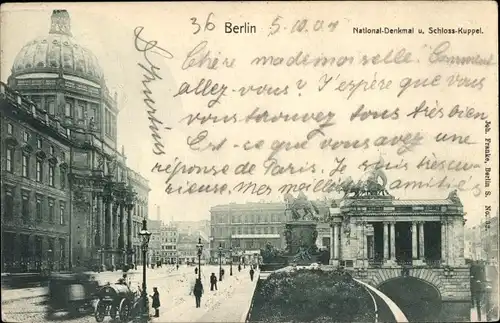 36 Berlin 5.10.04 National-Denkmal u. Schloss-Kuppel.
Chère mademoiselle. Comment
allez-vous? J'espère que vous
vous trouvez tous très bien
Est-ce que vous avez une
réponse de Paris. Je suis très cu
rieuse. Mes meilleures amitiés
Joh. Franke, Berlin S.